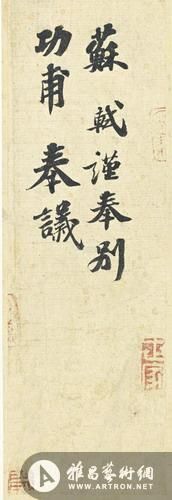 蘇軾謹奉別
功甫奉議
雅昌藝術網
WWW.ARTRON.NET